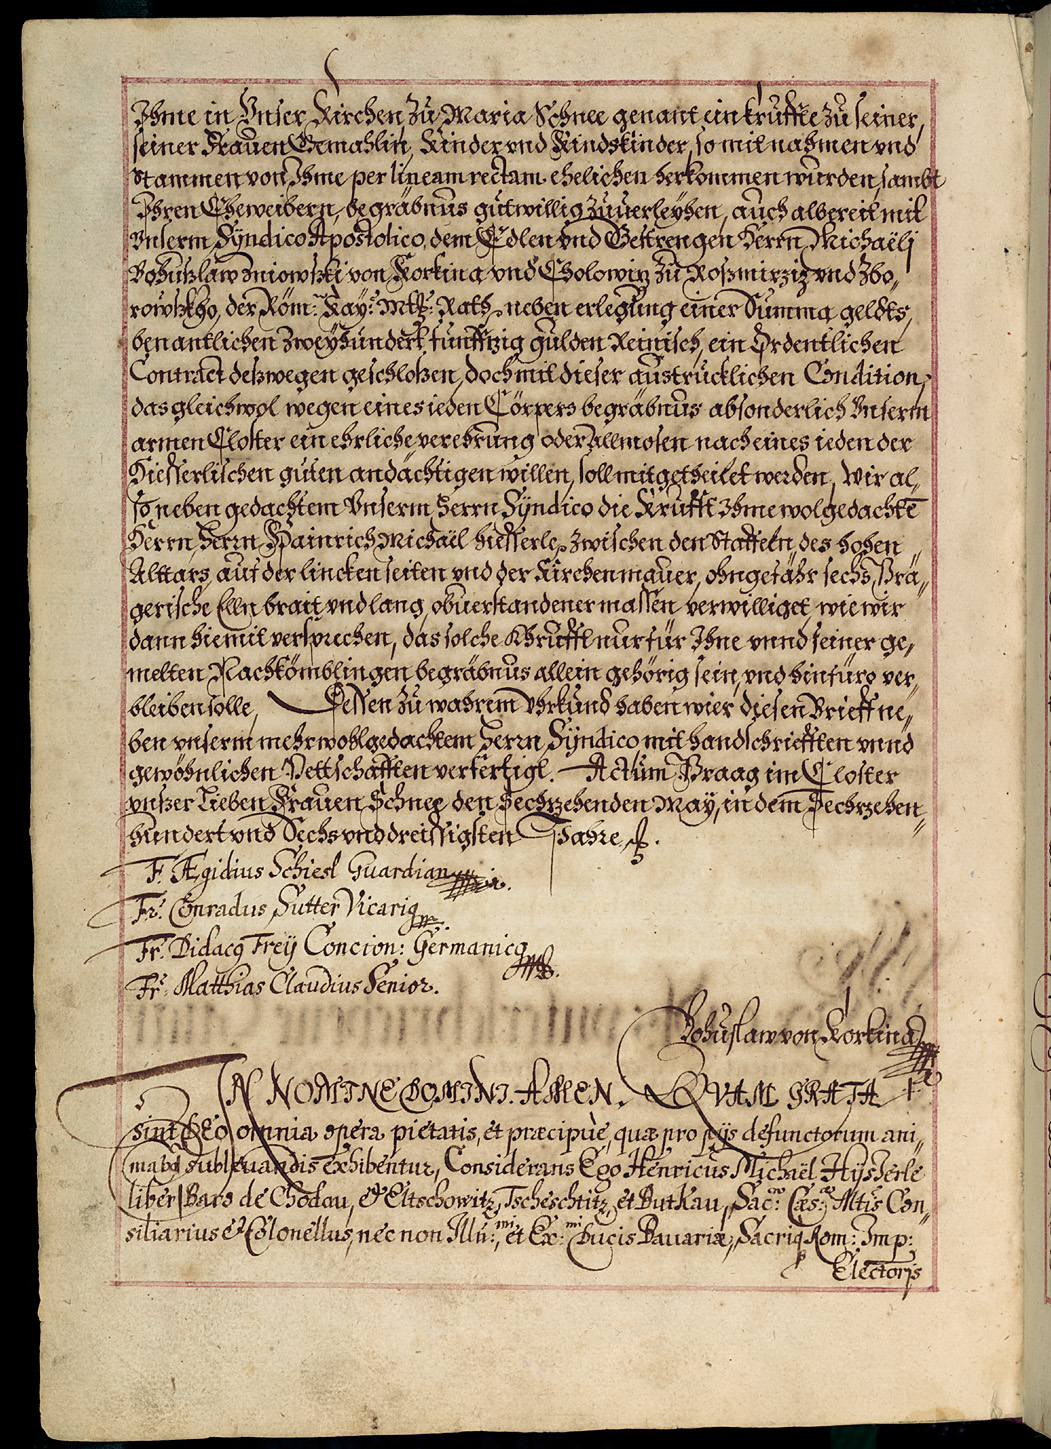 Ihme in Unser Kirchen zu Maria Schnee genant ein krufft zu seiner,
seiner Frauen Gemahlin, Kinder vnd Kindskinder, so mit nahmen vnd
stammen von Ihme per lineam rectam ehelichen herkommen wurden, sambt
Ihren Eheweibern, begräbnus gutwillig zuuerleyhen, auch albereit mit
Vnserm Syndico Apostolico, dem Edlen vnd Gestrengen Herrn Michaëlj
von Korkina vnd Cholowiz zu Rosmirziz vnd Zbo„
rowskho, der Röm: Kay: Mtt: Rath, neben erlegung einer Summa geldts,
benantlichen zweyhundert funffzig gulden Reinisch, ein Ordentlichen
Contract deßwegen geschloßen, doch mit dieser austrucklichen Condition,
das gleichwol wegen eines ieden Cörpers begräbnus absonderlich Vnserm
armen Closter ein ehrliche verehrung oder Allmosen nach eines ieden der
Hiesserlischen guten andächtigen willen, soll mitgetheilet werden, Wir al„
so neben gedachtem Vnserm Herrn Syndico die Krufft Ihme wolgedachtē
Herrn, Herrn Hainrich Michaël Hiesserle, zwischen den Staffeln, des hohen
Alttars, auf der lincken seiten vnd der Kirchenmauer, ohngefähr sechs Bra„
gerische Elln brait vnd lang, obuerstandener massen verwilliget, wie wir
dann hiemit versprechen, das solche Khrufft nur für Ihne vnnd seiner ge„
melten Nachkömblingen begräbnus allein gehörig sein, vnd hinfüro ver„
bleiben solle, Dessen zu wahrem Vhrkund haben wier diesen Brieff ne„
ben vnserm mehrwohlgedachtem Herrn Syndico mit handschriefften vnnd
gewöhnlichen Pettschafften verfertigt. Actum Praag im Closter
vnßer Lieben Frauen Schnee den Sechzehenden May, in dem Sechzehen„
hundert vnd Sechs vnd dreissigsten Jahre.
F. Ægidius Schiesl Guardian
Fr. Conradus Sutter Vicariq
Fr. Didacq Freij Concion: Germanicq
Fr. Matthias Claudius Senior.
Bohuslaw von Korkina
IN NOMINE DOMINI. AMEN. QVAM GRATA
sint DEO omnia opera pietatis, et præcipuè, quæ pro pijs defunctorum ani„
mabq subleuandis exhibentur, Considerans Ego Henricus Michaël Hijsserle
liber Baro de Chodau, & Eltschowitz, Tscheschtitz, et Butkau, Sac:æ Cæs:æ Mtis Con„
siliarius & Colonellus, nec non Illu:mi, et Ex:mi Ducis Bauariæ, Sacriq Rom: Imp:
Electoris